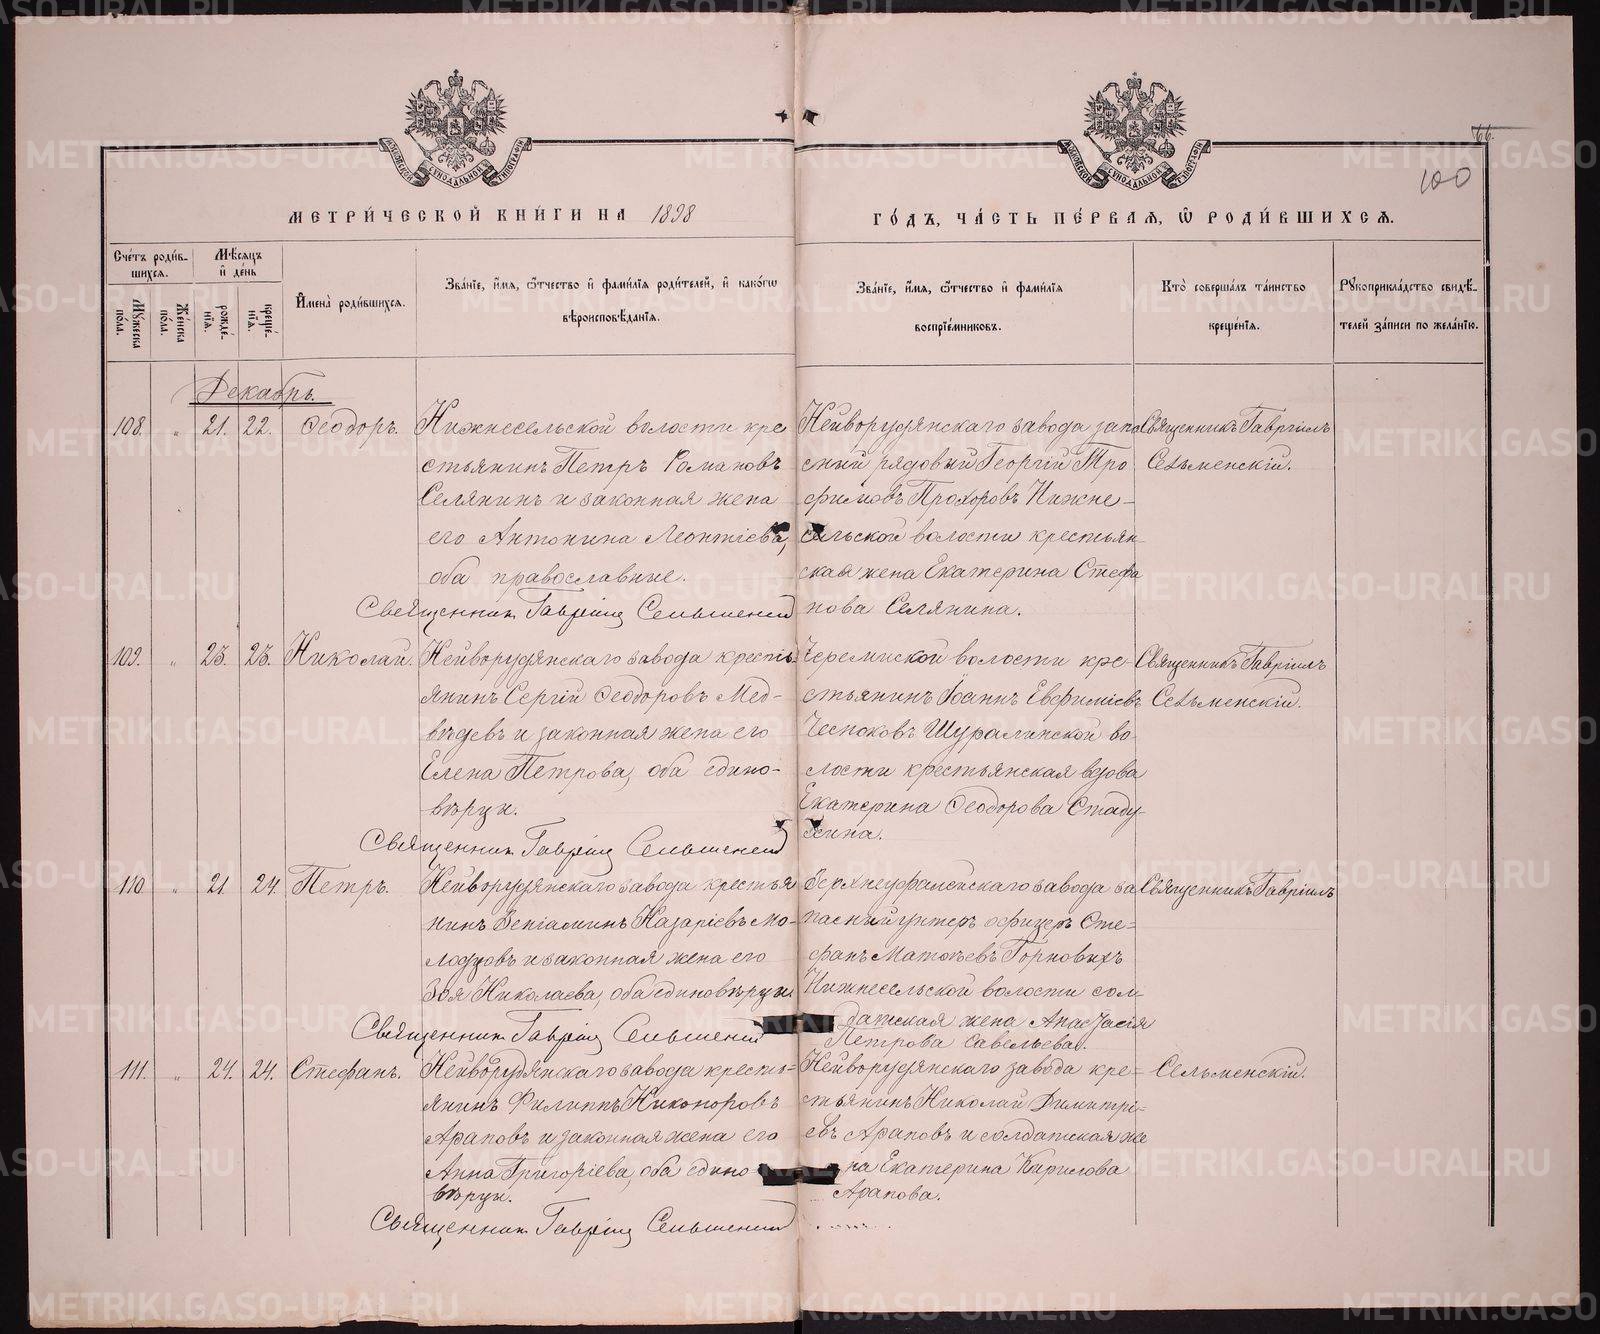 66.
100
МЕТРИ́ЧЕСКОЙ КНИ́ГИ НА 1898 ГО́ДЪ, ЧА́СТЬ ПЕ́РВАѦ, Ѡ РОДИ́ВШИХСѦ.
Сче́тъ роди́вшихся.
Мꙋжеска по́ла.
Же́нска по́ла.
Мѣ́сяцъ и҆ де́нь
рожде́нїѧ.
креще́нїѧ.
И҆мена̀ роди́вшихся.
Зва́нїе, и҆́мѧ, ѻ҆́тчество и҆ фами́лїѧ роди́телей, и҆ како́гѡ
вѣроисповѣ́данїѧ.
Зва́нїе, и҆́мѧ, ѻ҆́тчество и҆ фами́лїѧ
воспрїе́мниковъ.
Кто̀ соверша́лъ та́инство
креще́нїѧ.
Рꙋкоприкла́дство свидѣ́-
телей за́писи по жела́нїю.
Декабрь.
108. " 21. 22. Ѳеодоръ.
Нижнесельской волости кре
стьянинъ Петръ Романовъ
Селянинъ и законная жена
его Антонина Леонтіева,
оба православные.
Священник Гавріил Сельменский
Нейворуднянскаго завода запа
сный рядовый Георгій Тро
фимовъ Прохоровъ Нижне-
сельской волости крестьян-
ская жена Екатерина Стефа
нова Селянина.
Священникъ Гавріилъ
Сельменскій.
109. " 23. 23. Николай.
Нейворудянскаго завода кресть-
янинъ Сергій Ѳеодоровъ Мед-
вѣдевъ и законная жена его
Елена Петрова, оба едино-
вѣрцы.
Священник Гавріил Сельменский
Черемиской волости кре-
стьянинъ Іоаннъ Евфиміевъ
Чесноковъ Шуралинской во
лости крестьянская вдова
Екатерина Ѳеодорова Стаду-
хина.
Священникъ Гавріилъ
Сельменскій.
110 " 21 24. Петръ.
Нейворудянскаго завода крестья
нинъ Веніаминъ Назаріевъ Мо-
лодцовъ и законная жена его
Зоя Николаева, оба единовѣрцы
Священник Гавріил Сельменский
Верхнеуфалейскаго завода за
пасный унтеръ офицеръ Сте-
фанъ Матѳеевъ Горновыхъ
Нижнесельской волости сол-
датская жена Анастасія
Петрова Савельева.
Священникъ Гавріилъ
111. " 24. 24. Стефанъ.
Нейворудянскаго завода кресть-
янинъ Филиппъ Никоноровъ
Араповъ и законная жена его
Анна Григоріева, оба едино-
вѣрцы.
Священник Гавріил Сельменский
Нейворудянскаго завода кре-
стьянинъ Николай Димитрі-
евъ Араповъ и солдатская же
на Екатерина Кирилова
Арапова.
Сельменскій.